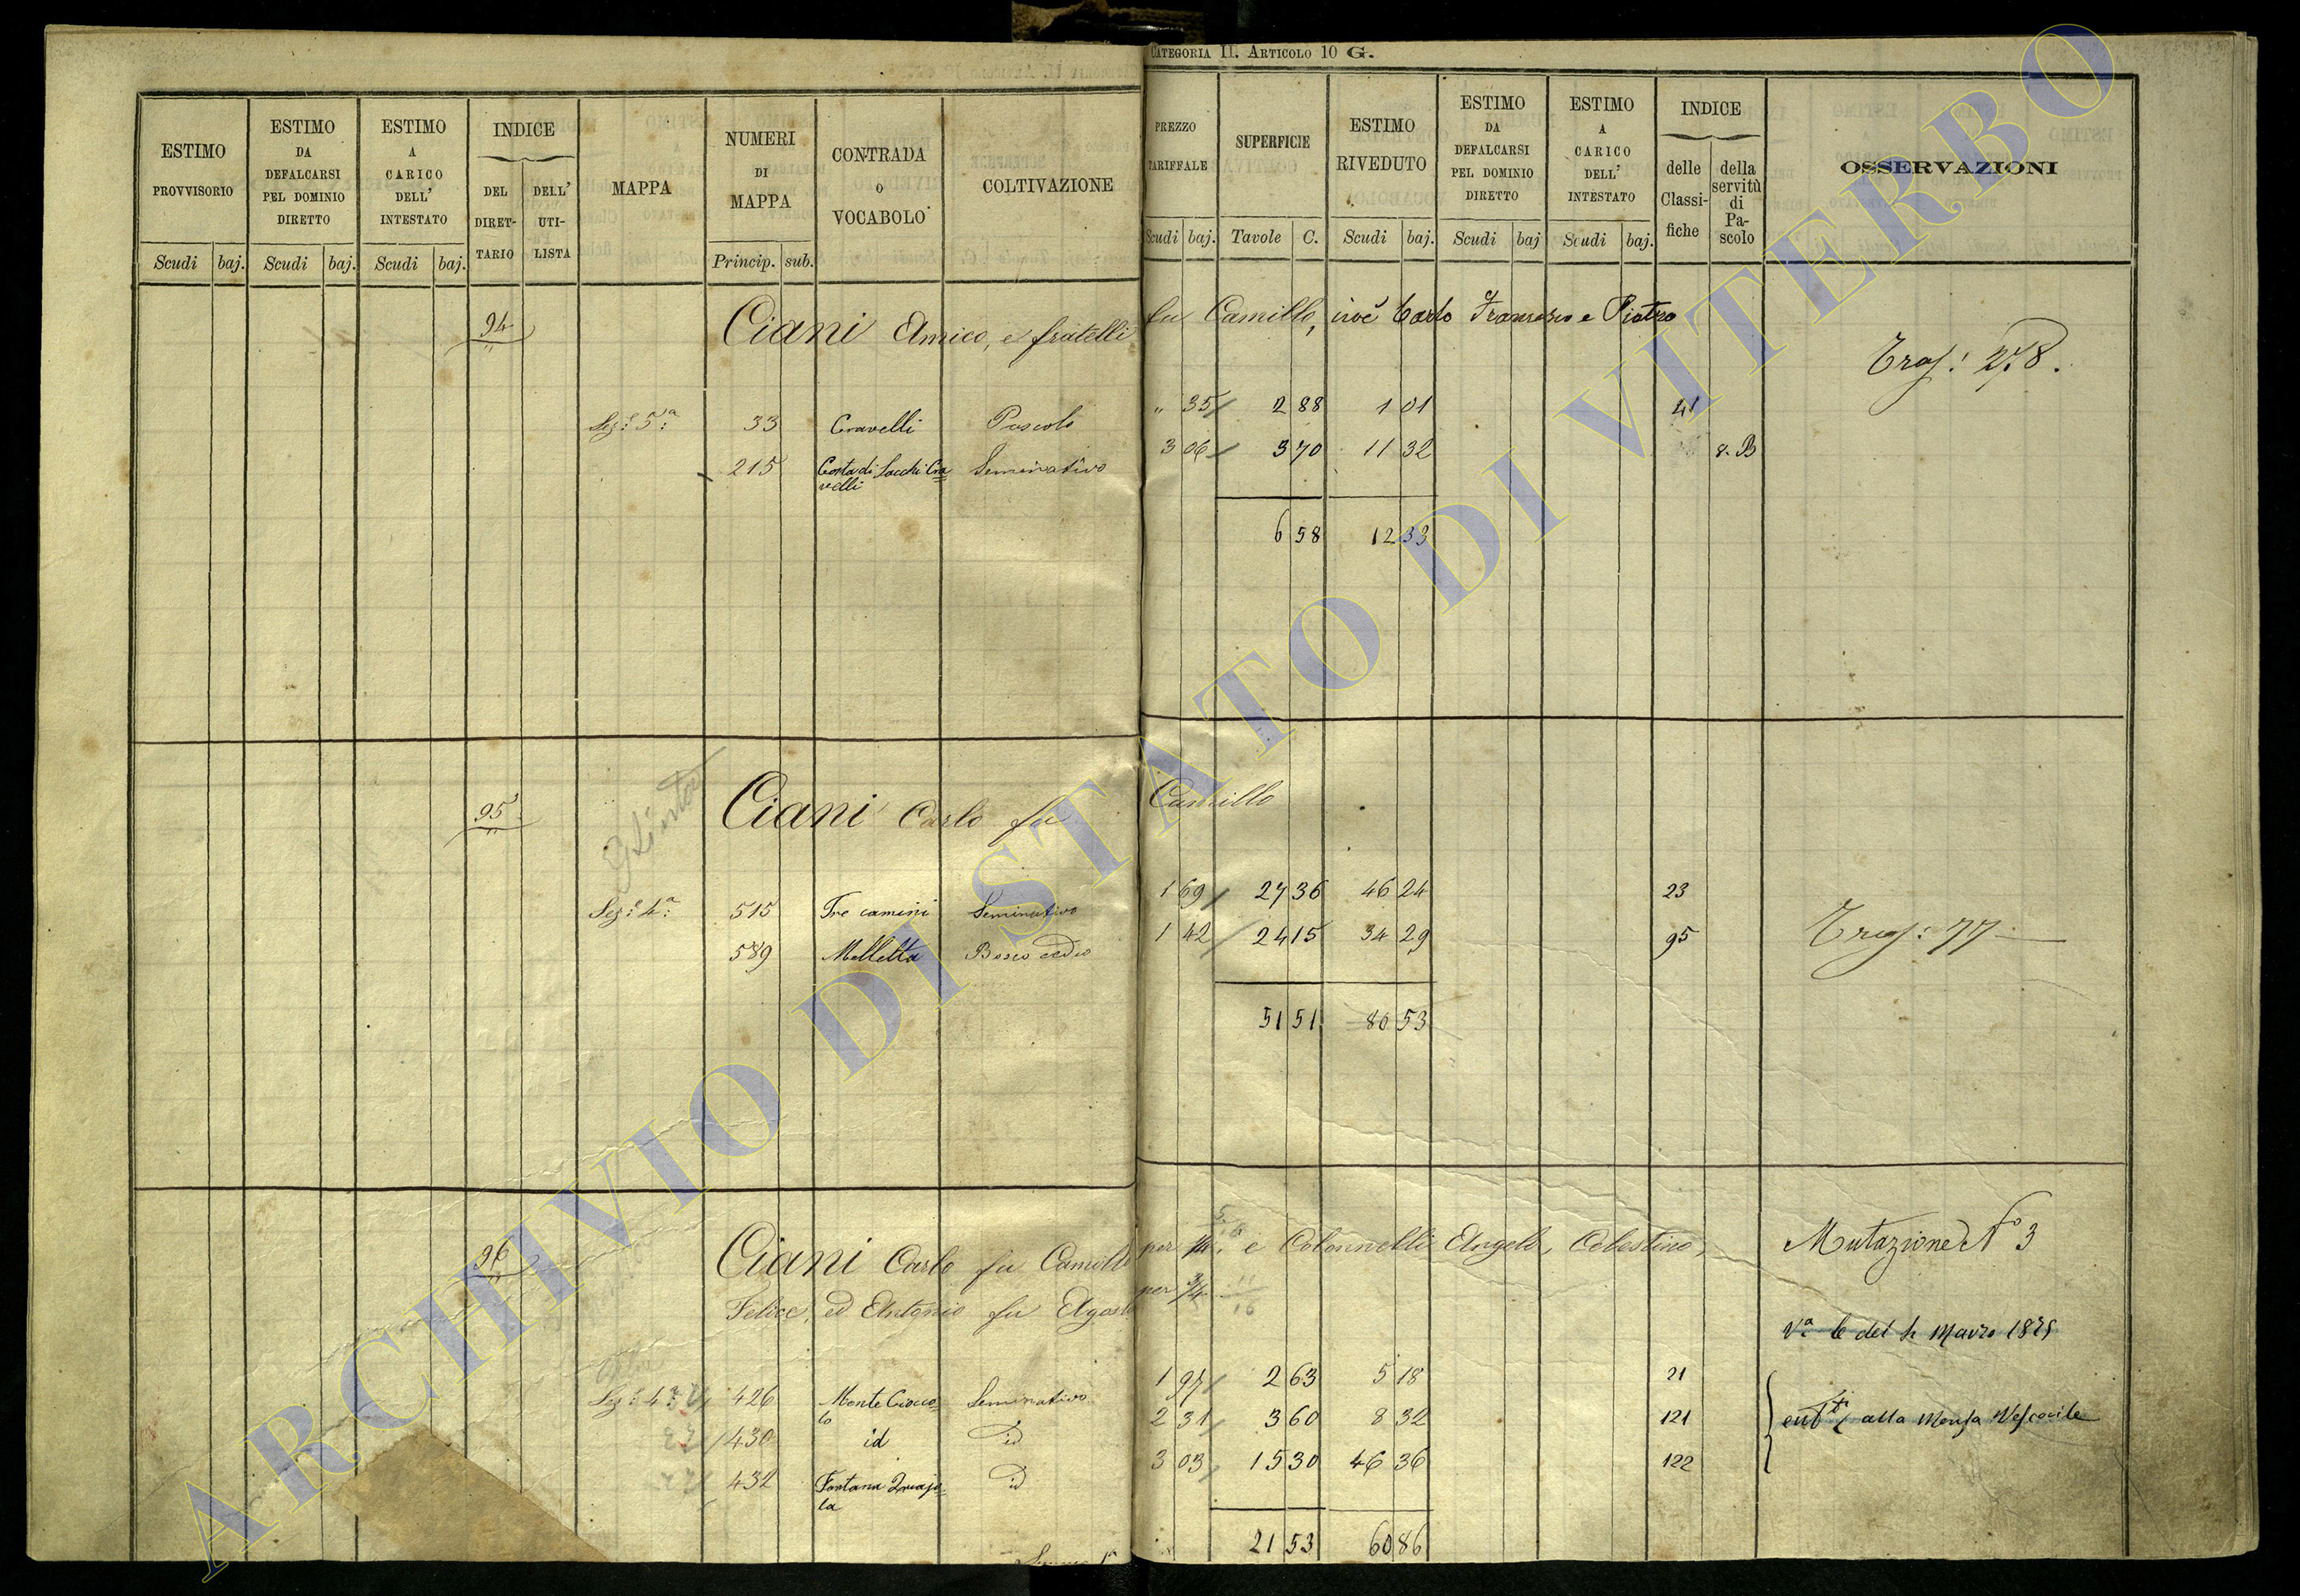 CATEGORIA II. ARTICOLO 10 G.
ESTIMO PROVVISORIO
ESTIMO DA DEFALCARSI PEL DOMINIO DIRETTO
ESTIMO A CARICO DELL' INTESTATO
INDICE
DEL DIRETTARIO
DELL' UTILISTA
MAPPA
NUMERI DI MAPPA
CONTRADA O VOCABOLO
COLTIVAZIONE
PREZZO TARIFFALE
SUPERFICIE
ESTIMO RIVEDUTO
ESTIMO DA DEFALCARSI PEL DOMINIO DIRETTO
ESTIMO A CARICO DELL' INTESTATO
INDICE
delle Classifiche
della servitù di Pascolo
OSSERVAZIONI
Scudi baj. Scudi baj. Scudi baj. Princip. sub. Scudi baj. Tavole C. Scudi baj. Scudi baj Scudi baj.
94 Ciani Amico, e fratelli fu Camillo, cioè Carlo Francesco e Pietro
278.
Sez: 5ª 33 Cravelli Pascolo " 35 2 88 1 01 41
215 Costa di Sacchi Cra= Seminativo 3 06 3 70 11 32 8. B
velli
6 58 12 33
95 Ciani Carlo fu Camillo
Sez: 4ª 515 Tre camini Seminativo 1 69 27 36 46 24 23
589 Melletta Bosco ceduo 1 42 24 15 34 29 95
77
51 51 80 53
96 Ciani Carlo fu Camillo per 1/4, e Colonnelli Angelo, Celestino, Mutazione N° 3
Felice, ed Antonio fu Agosto per 3/4
11/16
Vª 6 del Marzo 1875
Sez: 4ª 426 Monte Ciocco= Seminativo 1 97 2 63 5 18 21
lo
430 id id 2 31 3 60 8 32 121 alla Mensa Vescovile
432 Fontana id 3 03 15 30 46 36 122
la
21 53 60 86
ARCHIVIO DI STATO DI VITERBO